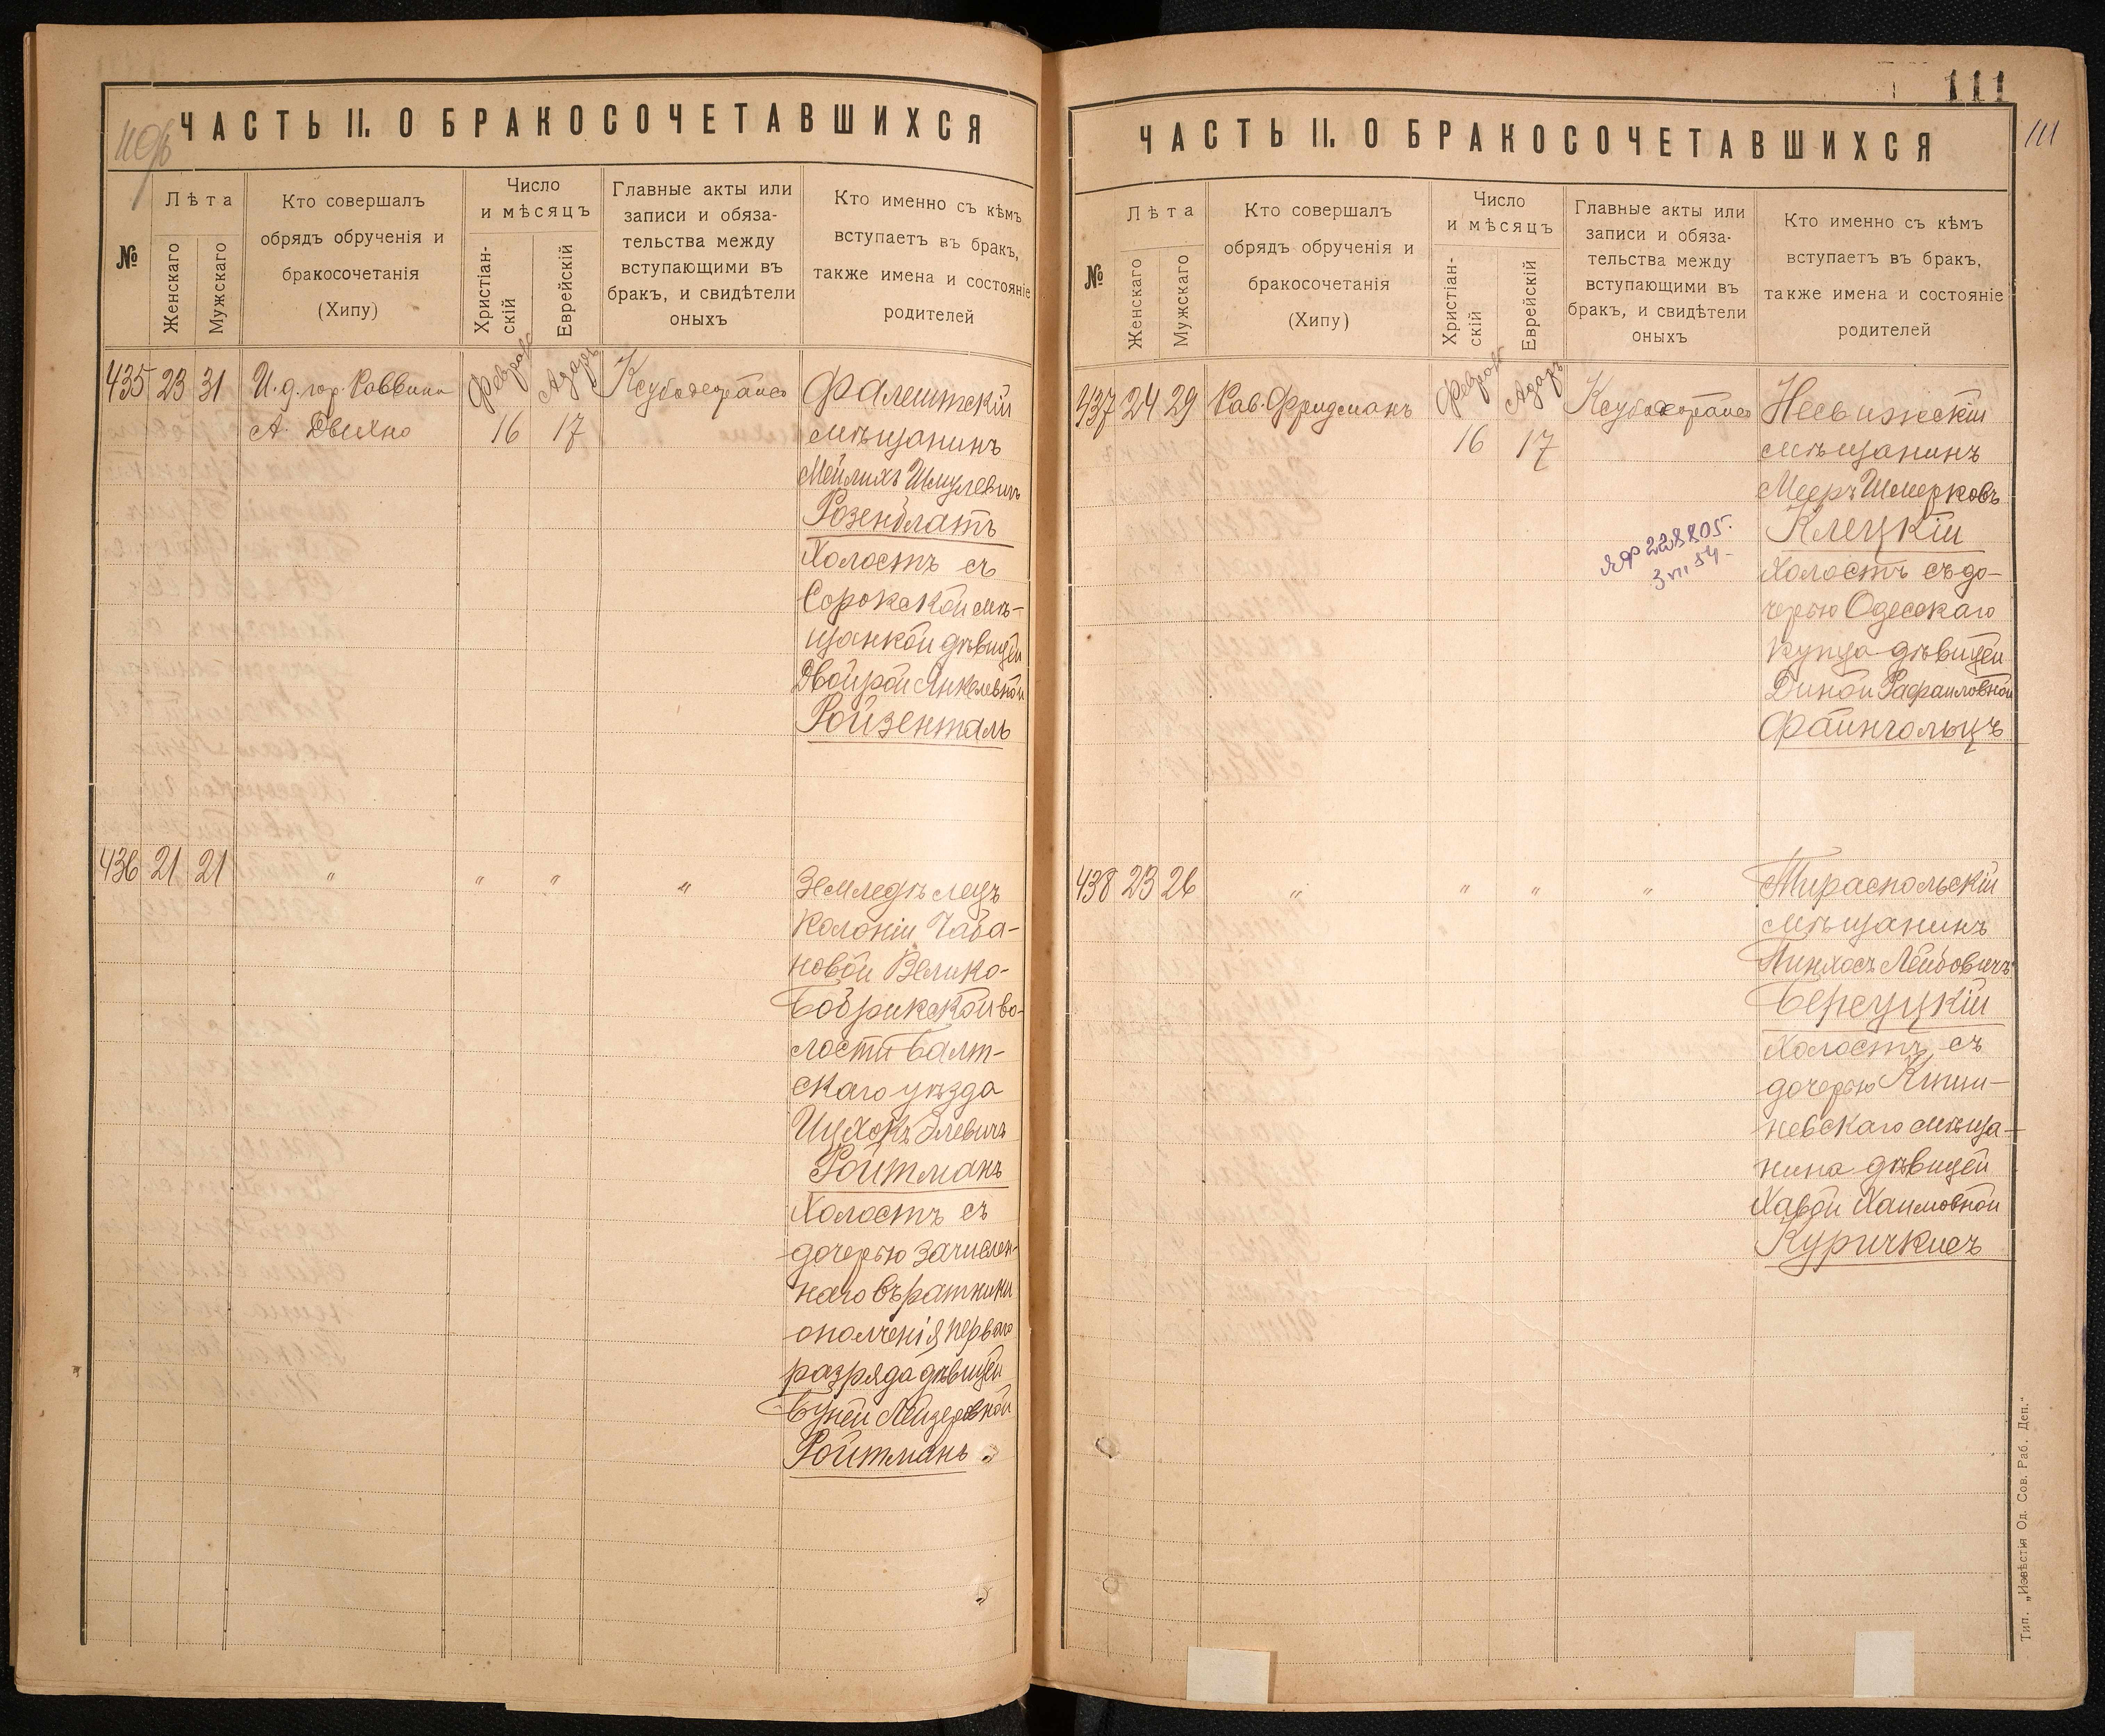 ЧАСТЬ II. О БРАКОСОЧЕТАВШИХСЯ
№
Лѣта
Женскаго
Мужскаго
Кто совершалъ
обрядъ обрученія и
бракосочетанія
(Хипу)
Число
и мѣсяцъ
Христіан-
скій
Еврейскій
Главные акты или
записи и обяза-
тельства между
вступающими въ
бракъ, и свидѣтели
оныхъ
Кто именно съ кѣмъ
вступаетъ въ бракъ,
также имена и состояніе
родителей
435 23 31 И.д. гор. Раввина Февраль Адаръ Фалештскій
А. Двихно 16 17 мѣщанинъ
Мейлихъ Шмулевичъ
Розенблатъ
Холостъ съ
Сорокской мѣ-
щанкой дѣвицей
Двойрой Янкелевной
Ройзенталь
436 21 21 " " " " Земледѣлецъ
Колоніи Чаба-
новой Велико-
Бобрикской во-
лости Балт-
скаго уѣзда
Ицхокъ Элевичъ
Ройтманъ
Холостъ съ
дочерью зачислен-
наго въ ратники
ополченія перваго
разряда дѣвицей
Бүней Лейзеровной
Ройтманъ
111
111
ЧАСТЬ II. О БРАКОСОЧЕТАВШИХСЯ
№
Лѣта
Женскаго
Мужскаго
Кто совершалъ
обрядъ обрученія и
бракосочетанія
(Хипу)
Число
и мѣсяцъ
Христіан-
скій
Еврейскій
Главные акты или
записи и обяза-
тельства между
вступающими въ
бракъ, и свидѣтели
оныхъ
Кто именно съ кѣмъ
вступаетъ въ бракъ,
также имена и состояніе
родителей
437 24 29 Рав. Фридманъ Февраль Адаръ Несвижскій
16 17 мѣщанинъ
Мееръ Шмерковъ
Клецкій
228805.
Холостъ съ до-
черью Одесскаго
купца дѣвицей
Диной Рафаиловной
Файнгольцъ
438 23 26 " " " " Тираспольскій
мѣщанинъ
Пинхосъ Лейбовичъ
Берсуцкій
Холостъ съ
дочерью Киши-
невскаго мѣща-
нина дѣвицей
Хавой Хаимовной
Куричкисъ
Тип. „Извѣстія Од. Сов. Раб. Деп."